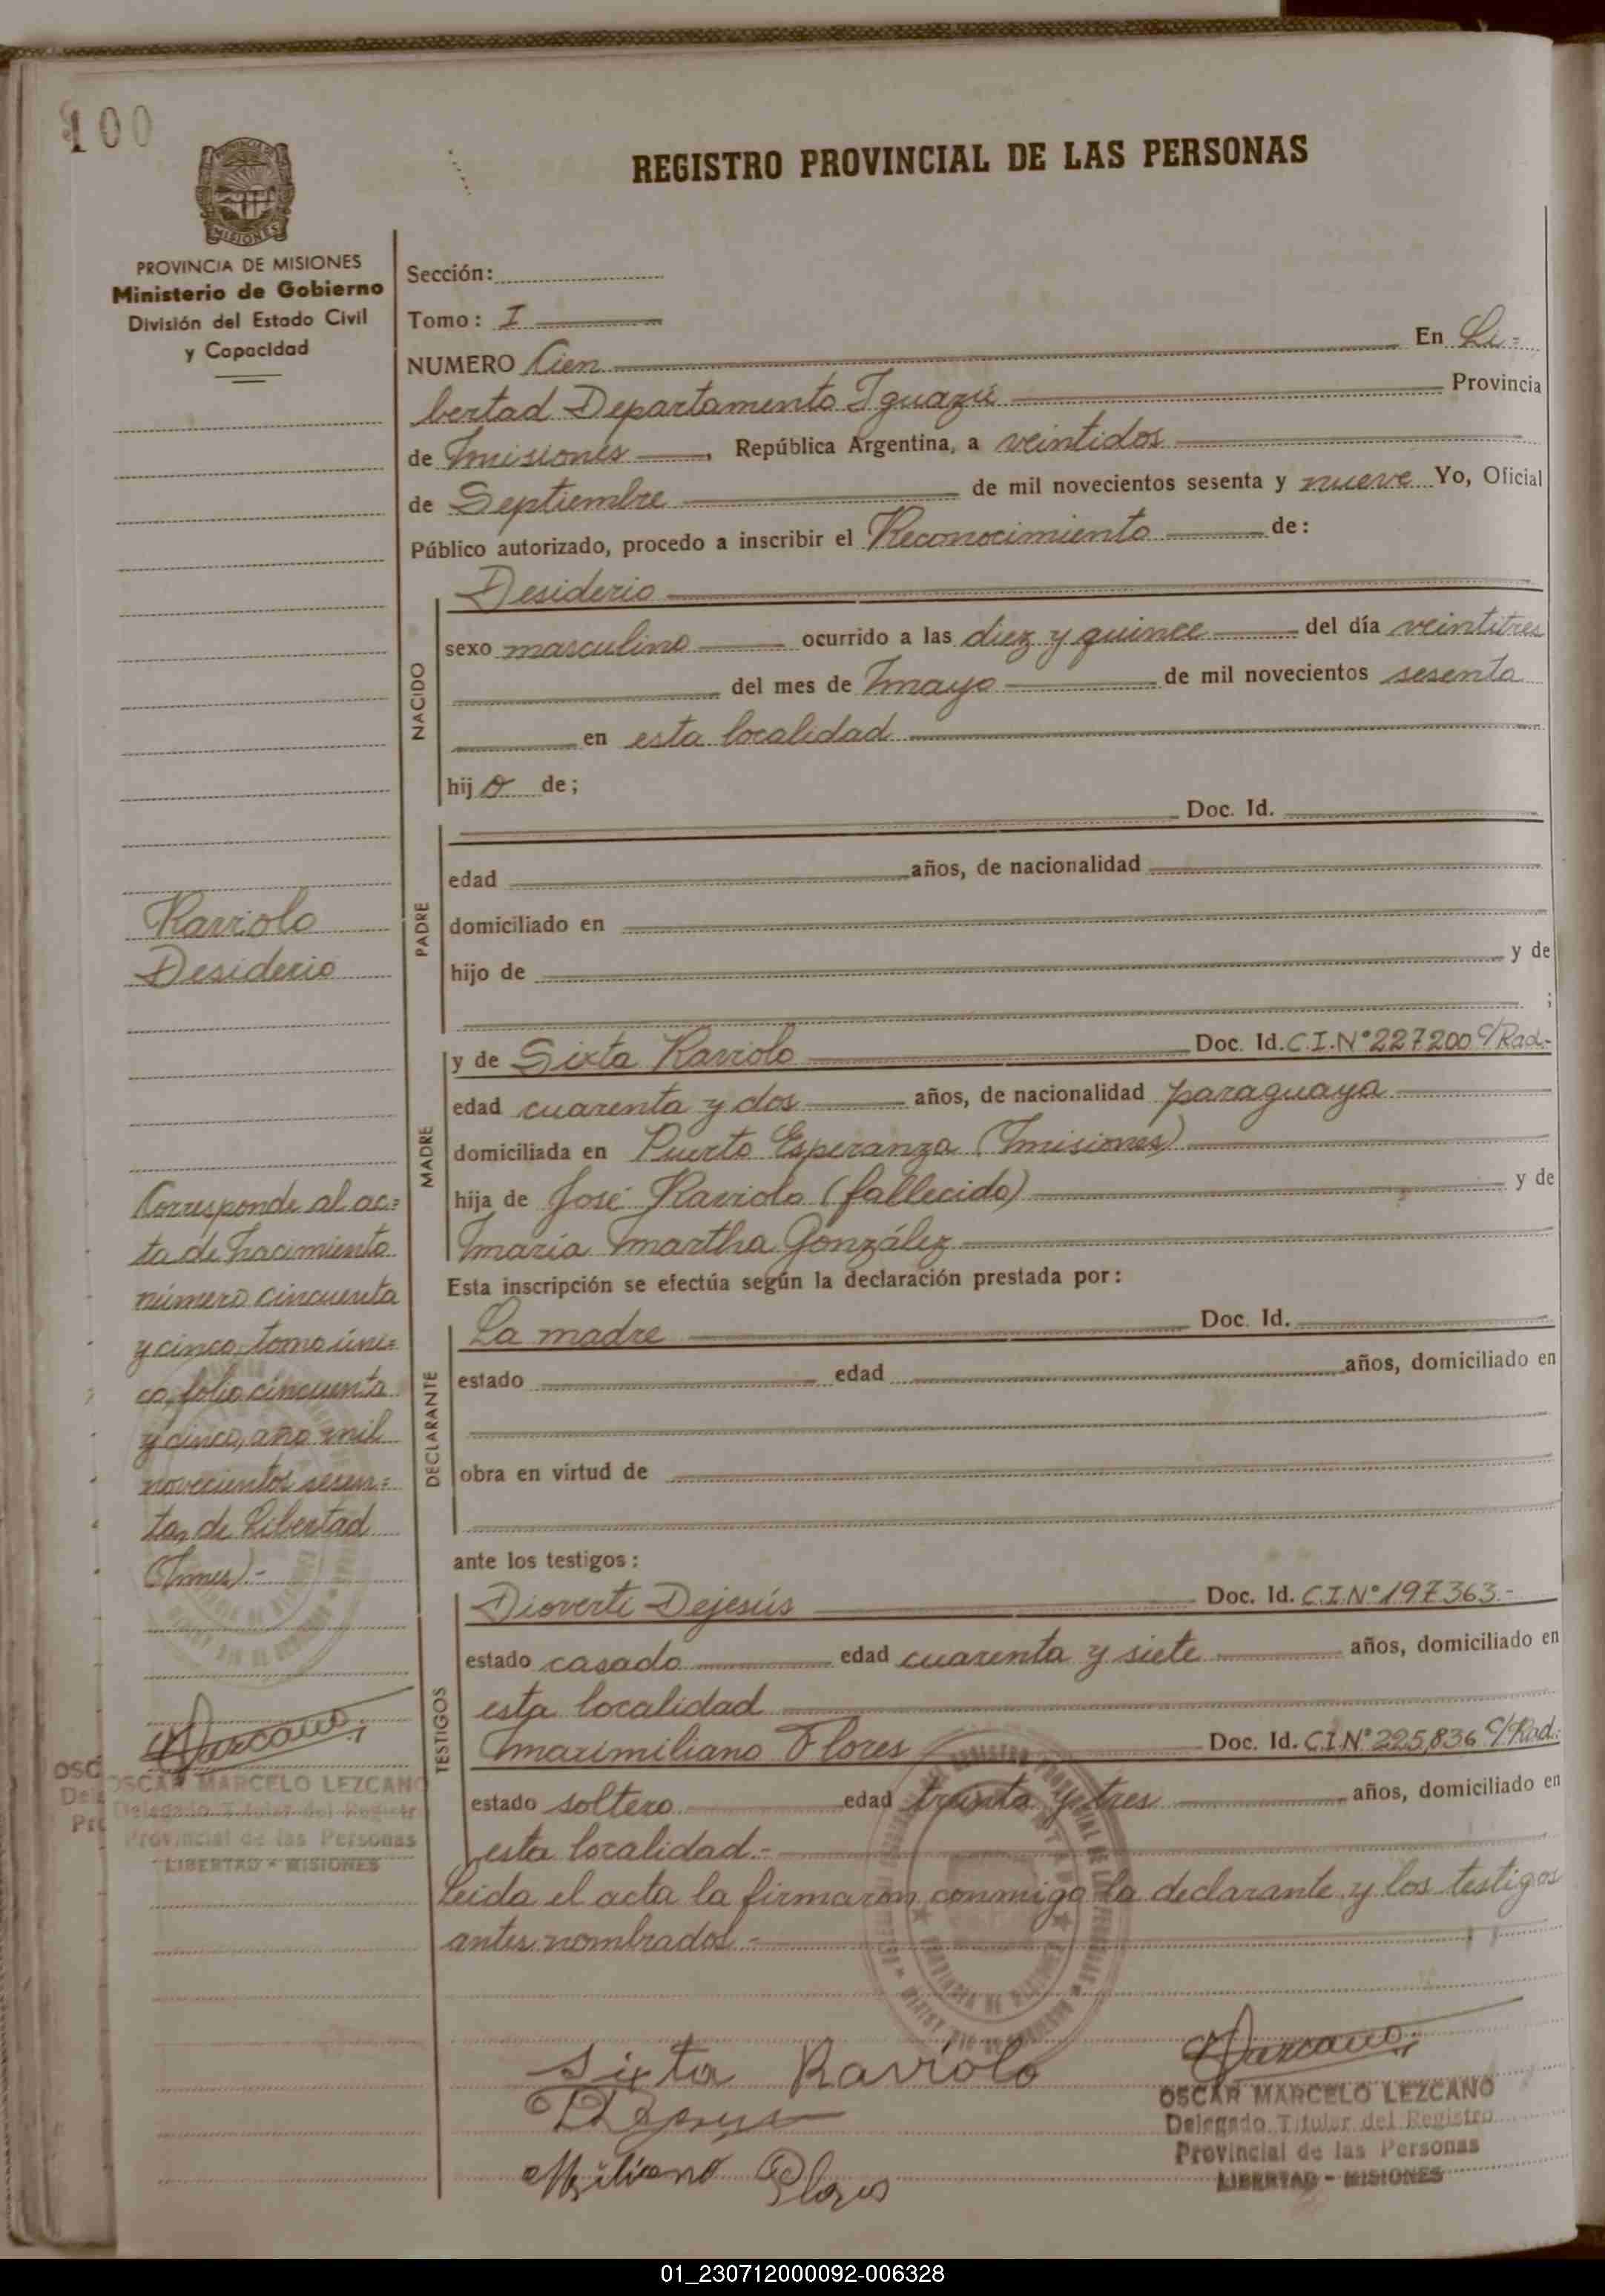 100
REGISTRO PROVINCIAL DE LAS PERSONAS
MISIONES
PROVINCIA DE MISIONES
Ministerio de Gobierno
División del Estado Civil
y Capacidad
Sección:
Tomo: I
NUMERO Cien En Li-
bertad Departamento Iguazú Provincia
de Misiones, República Argentina, a veintidos
de Septiembre de mil novecientos sesenta y nueve Yo, Oficial
Público autorizado, procedo a inscribir el Reconocimiento de:
NACIDO
Desiderio
sexo masculino ocurrido a las diez y quince del día veintitres
del mes de mayo de mil novecientos sesenta
en esta localidad
hijo de;
PADRE
Doc. Id.
edad años, de nacionalidad
domiciliado en
hijo de y de
;
Raviolo
Desiderio
MADRE
y de Sixta Raviolo Doc. Id. C.I.Nº 227200 C/Rad.-
edad cuarenta y dos años, de nacionalidad paraguaya
domiciliada en Puerto Esperanza (Misiones)
hija de José Raviolo (fallecido) y de
María Martha González
Esta inscripción se efectúa según la declaración prestada por:
DECLARANTE
La madre Doc. Id.
estado edad años, domiciliado en
obra en virtud de
Corresponde al ac=
ta de Nacimiento
número cincuenta
y cinco, tomo úni=
co, folio cincuenta
y cinco, año mil
novecientos sesen=
ta, de Libertad
(Mnes).-
ante los testigos:
TESTIGOS
Dioverti Dejesús Doc. Id. C.I.Nº 197363.-
estado casado edad cuarenta y siete años, domiciliado en
esta localidad
Maximiliano Flores Doc. Id. C.I.Nº 225,836 C/Rad.
estado soltero edad treinta y tres años, domiciliado en
esta localidad.-
Leida el acta la firmaron conmigo la declarante y los testigos
antes nombrados.-
OSCAR MARCELO LEZCANO
Delegado Titular del Registr
Provincial de las Personas
LIBERTAD - MISIONES
Sixta Raviolo
Flores
OSCAR MARCELO LEZCANO
Delegado Titular del Registro
Provincial de las Personas
LIBERTAD - MISIONES
01_230712000092-006328